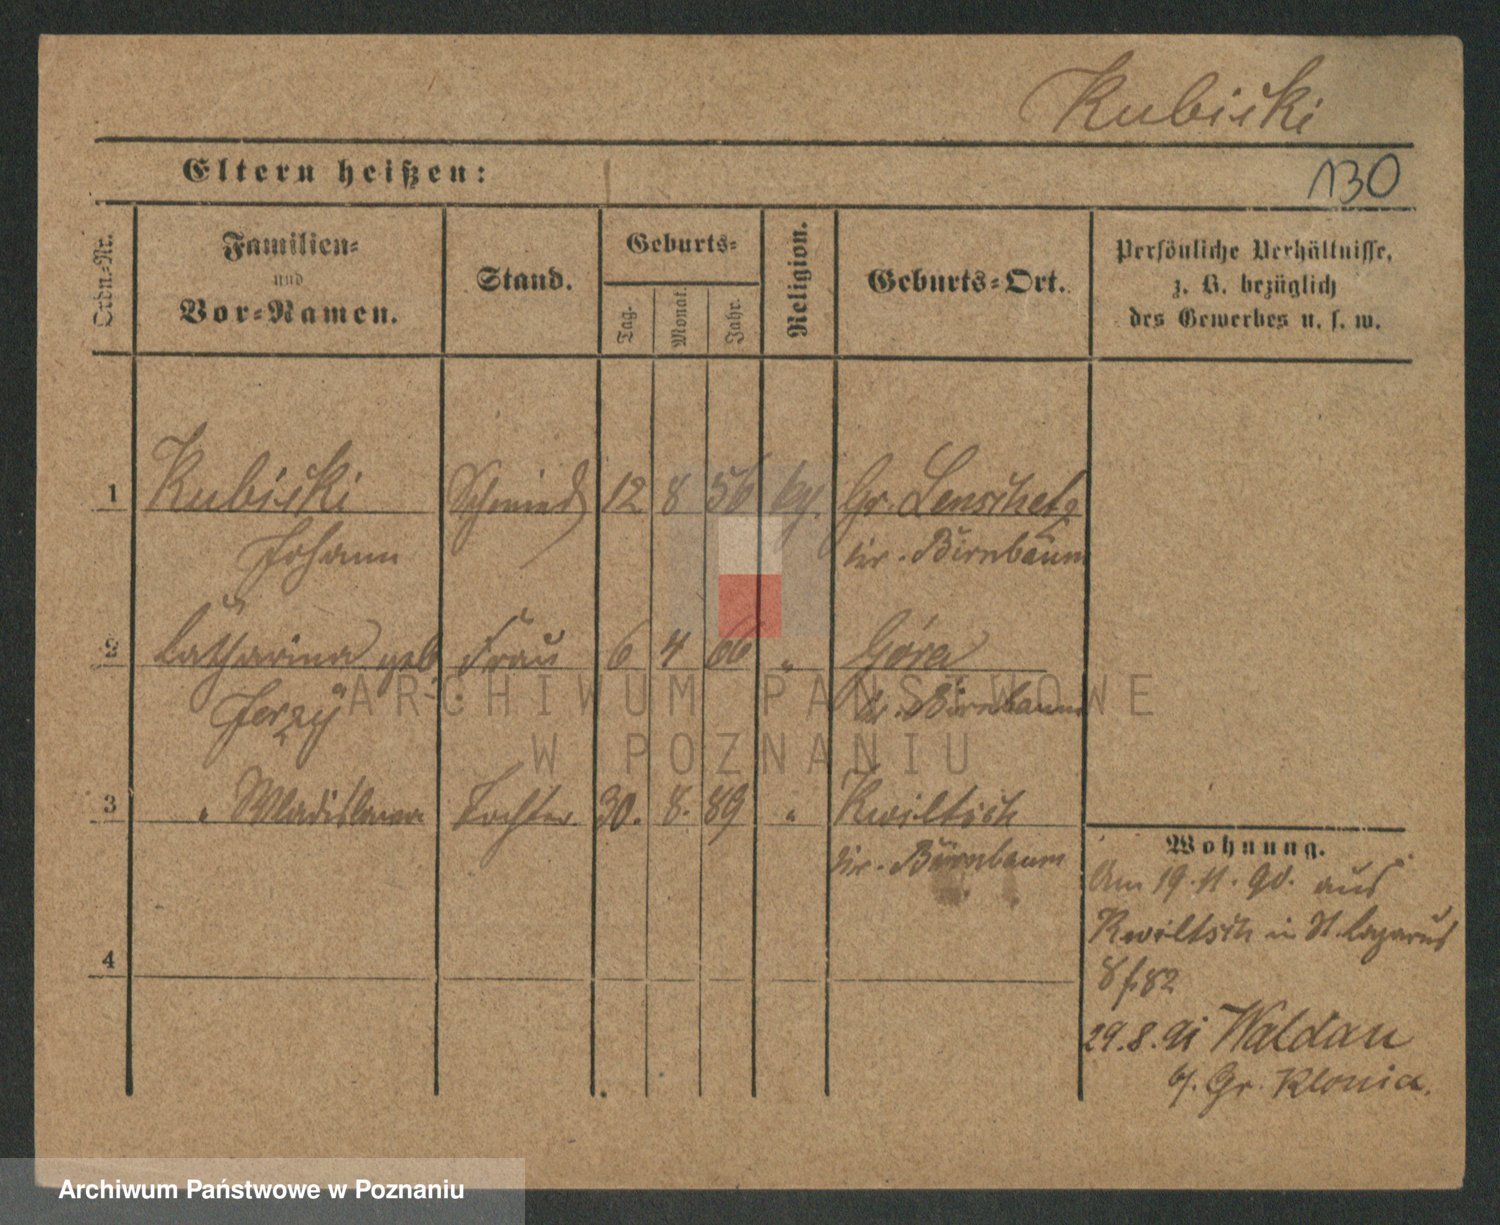 Kubicki
130
Eltern heißen:
Ordn.-Nr.
Familien-
und
Vor-Namen.
Stand.
Geburts-
Tag.
Monat.
Jahr.
Religion.
Geburts-Ort.
Persönliche Verhältnisse,
z. B. bezüglich
des Gewerbes u. s. w.
1 Kubicki Schmied 12 8 56 Gr. Lenschetz
Johann Kr. Birnbaum
2 Catharina geb. Frau 6 4 66 " Góra
Jerzy Kr. Birnbaum
3 " Wladislawa Tochter 30. 8. 89 " Kwiltsch
Kr. Birnbaum
Wohnung.
Am 19.11.90. aus
Kwiltsch in St. Lazarus
82
4
29.8.91 Waldau
b/. Gr. Klonia.
ARCHIWUM PAŃSTWOWE
W POZNANIU
Archiwum Państwowe w Poznaniu